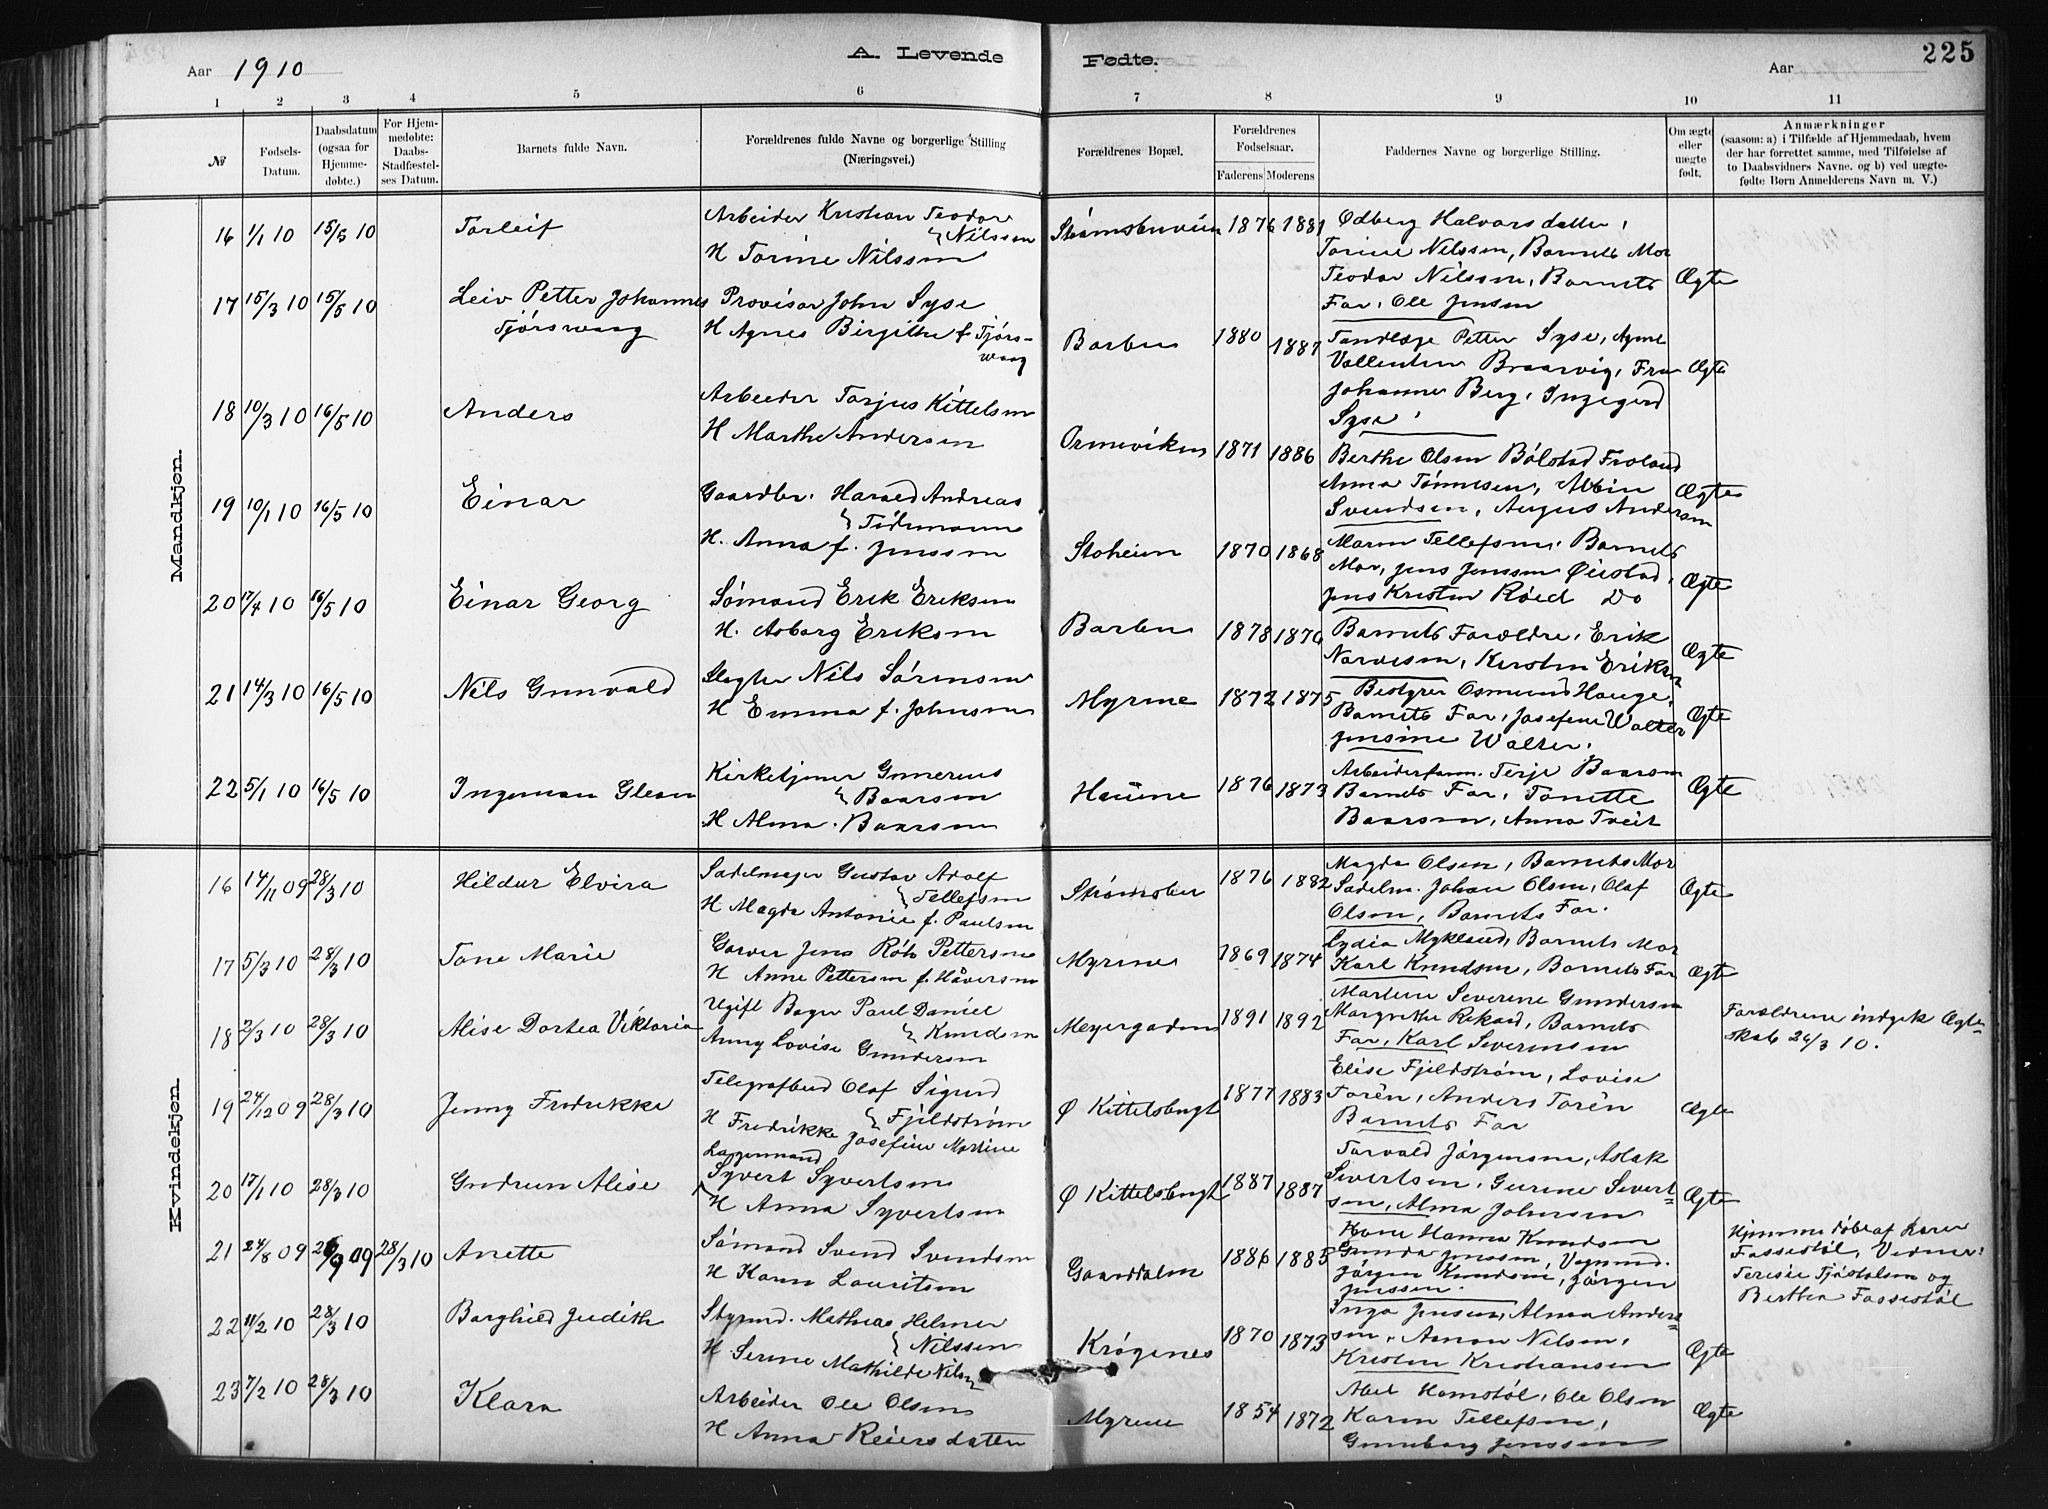 Aar 1910
A. Levende Fødte.
Aar
225
1 2 3 4 5 6 7 8 9 10 11
№
Fødsels-Datum.
Daabsdatum (ogsaa for Hjemmedøbte.)
For Hjemmedøbte: Daabs-Stadfæstelses Datum.
Barnets fulde Navn.
Forældrenes fulde Navne og borgerlige Stilling (Næringsvei.)
Forældrenes Bopæl.
Forældrenes Fødselsaar.
Faderens Moderens
Faddernes Navne og borgerlige Stilling.
Om ægte eller uægte født.
Anmærkninger
(saasom: a) i Tilfælde af Hjemmedaab, hvem
der har forrettet samme, med Tilføielse af
to Daabsvidners Navne. og b) ved uægte-
fødte Børn Anmelderens Navn m. V.)
Mandkjøn.
16 1/1 10 15/5 10 Torleif
Arbeider Kristian Teodor
Nilssen
H Torine Nilssen
1876 1881
Odberg Halvorsdatter,
Torine Nilssen, Barnets Mor
Teodor Nilssen, Barnets
Far, Ole Jensen
Ægte
17 15/3 10 15/5 10 Leiv Petter Johannes
Tjørswaag
Provisor John Syse
H Agnes Birgithe f Tjørs-
waag
Barbu 1880 1887
Tandlæge Petter Syse, Agne
Vallentin Braarvig, Fru
Johanne Berg, Ingegerd
Syse
Ægte
18 10/3 10 16/5 10 Anders
Arbeider Torjus Kittelsen
H Marthe Andersen
Ormeviken 1871 1886
Berthe Olsen Bölstad Froland
Anna Tönnesen, Albin
Svendsen, Augus Andersen
Ægte
19 10/1 10 16/5 10 Einar
Gaardbr. Harald Andreas
Tidemann
H. Anna f. Jenssen
Stoheim 1870 1868
Maren Tellefsen, Barnets
Mor, Jens Jenssen Øiestad,
Jens Kristen Röed Do
Ægte
20 17/4 10 16/5 10 Einar Georg
Sömand Erik Eriksen
H. Asborg Eriksen
Barbu 1878 1870
Barnets Forældre, Erik
Narvesen, Kirsten Eriksen
Ægte
21 14/3 10 16/5 10 Nils Gunvald
Slagter Nils Sörensen
H Emma f. Johnsen
Myrene 1872 1875
Bestyrer Osmund Hauge,
Barnets Far, Josefine Walter
Jensine Walter.
Ægte
22 5/1 10 16/5 10 Ingeman Glean
Kirketjener Gunerius
Baarsen
H Alma Baarsen
1876 1873
Arbeiderform. Terje Baarsen
Barnets Far, Tonette
Baarsen, Anna Tveit
Ægte
Kvindekjøn.
16 14/11 09 28/3 10 Hildur Elvira
Sadelmager Gustav Adolf
Tellefsen
H Magda Antonie f. Paulsen
Strømsbu 1876 1882
Magda Olsen, Barnets Mor
Sadelm. Johan Olsen, Olaf
Olsen, Barnets Far.
Ægte
17 5/3 10 28/3 10 Tone Marie
Garver Jens Röh Pettersen
H Anne Pettersen f. Håversen
Myrene 1869 1874
Lydia Mykland, Barnets Mor
Karl Knudsen, Barnets Far
Ægte
18 2/3 10 28/3 10 Alise Dortea Viktoria
Ugift Bager Paul Daniel
Knudsen
Anny Lovise Gundersen
Meyergaden 1891 1892
Martine Severine Gundersen
Margrethe Rekard, Barnets
Far, Karl Severinsen
Forældrene indgik Ægte-
skab 26/3 10.
19 24/12 09 28/3 10 Jenny Fredrikke
Telegrafbud Olaf Sigurd
Fjeldstrøm
H Fredrikke Josefine Martine
Ø Kittelsbugt 1877 1883
Elise Fjeldstrøm, Lovise
Torén, Anders Torén
Barnets Far
Ægte
20 17/1 10 28/3 10 Gudrun Alise
Syvert Syvertsen
H Anna Syvertsen
Ø Kittelsbugt 1887 1887
Torvald Jörgensen, Aslak
Sivertsen, Gurine Sivert-
sen, Alma Johnsen
Ægte
21 24/8 09 26/9 09 28/3 10 Anette
Sömand Svend Svendsen
H Karen Lauritsen
Gaarddalen 1886 1885
Kone Hanna Knudsen
Gunda Jenssen, Vognmd.
Jörgen Knudsen, Jörgen
Jenssen.
Hjemmedøbt af Karen
Fossestöl, Vidner:
Terese Tjöstolsen og
Berthea Fossestöl
22 11/2 10 28/3 10 Borghild Judith
Styrmd. Mathias Helmer
Nilssen
H Serine Mathilde Nilsen
Krögenes 1870 1873
Inga Jensen, Alma Anders-
sen, Amon Nilsen,
Kristen Kristiansen
Ægte
23 7/2 10 28/3 10 Klara
Arbeider Ole Olsen
H Anna Reiersdatter
Myrene 1854 1872
Abel Homstöl, Ole Olsen
Karen Tellefsen,
Gunnborg Jenssen
Ægte